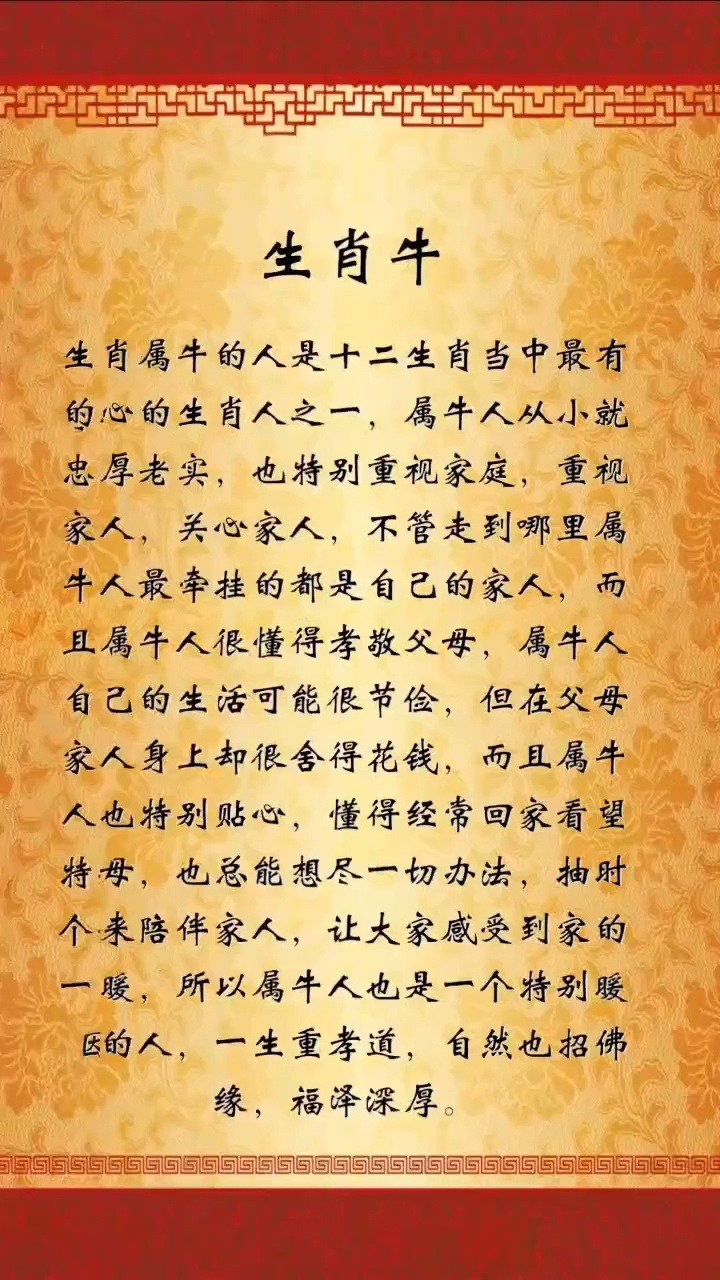 生肖牛
生肖属牛的人是十二生肖当中最有
的心的生肖人之一，属牛人从小就
忠厚老实，也特别重视家庭，重视
家人，关心家人，不管走到哪里属
牛人最牵挂的都是自己的家人，而
且属牛人很懂得孝敬父母，属牛人
自己的生活可能很节俭，但在父母
家人身上却很舍得花钱，而且属牛
人也特别贴心，懂得经常回家看望
特母，也总能想尽一切办法，抽时
个来陪伴家人，让大家感受到家的
一暖，所以属牛人也是一个特别暖
因的人，一生重孝道，自然也招佛
缘，福泽深厚。